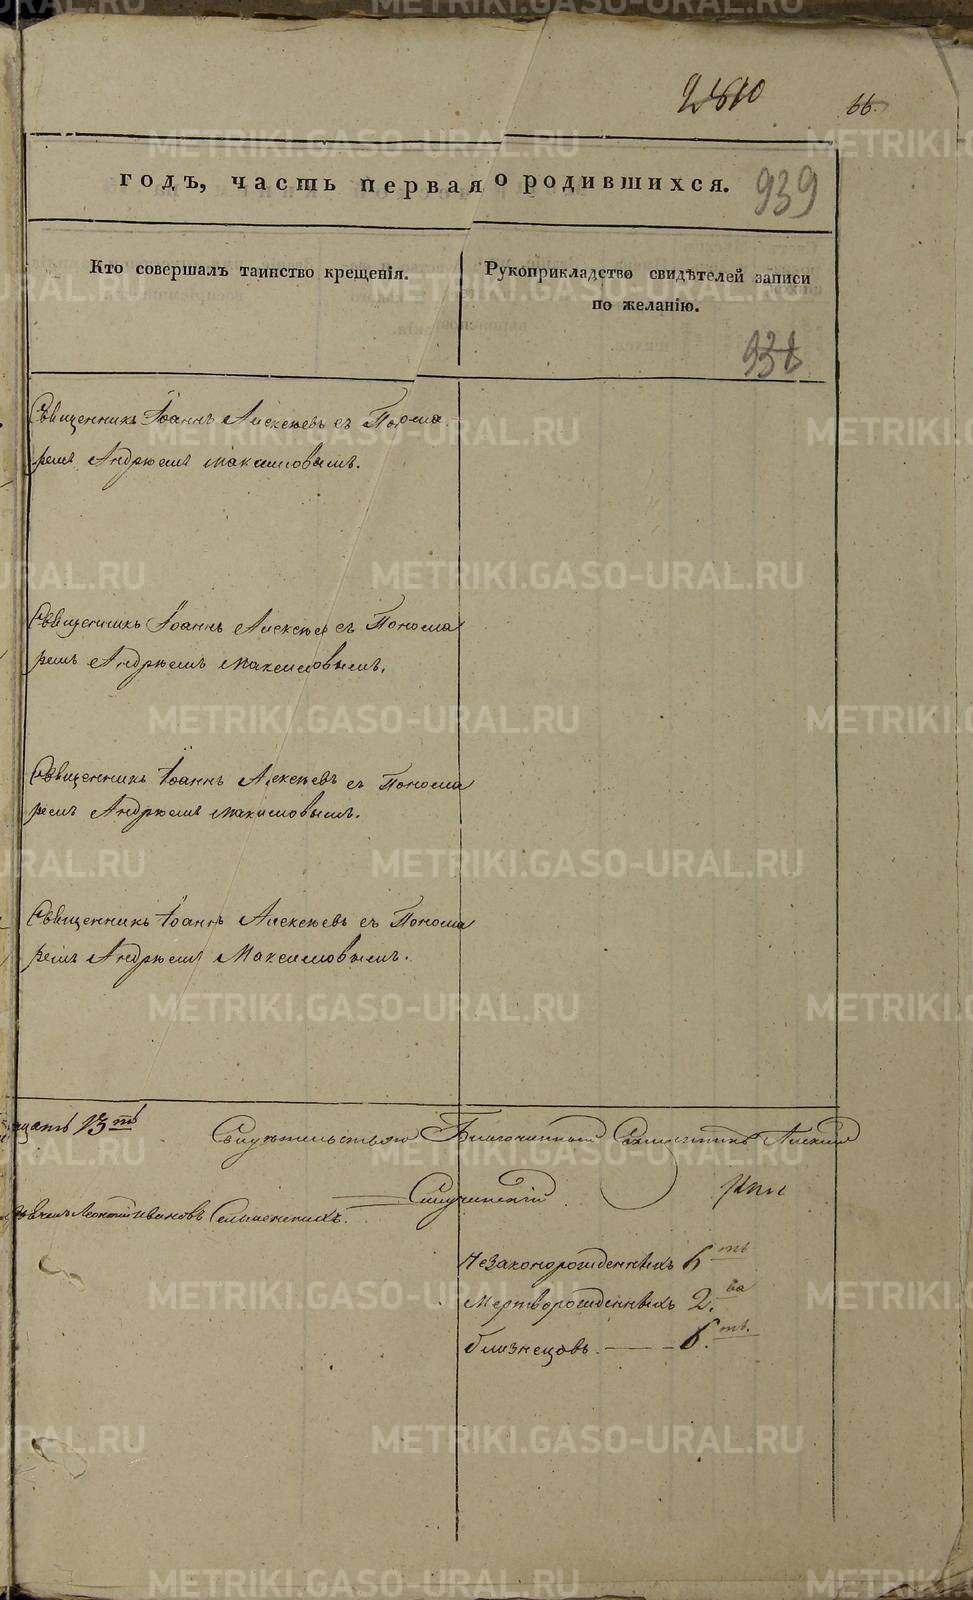 2810
66.
годъ, часть первая о родившихся.
939
Кто совершалъ таинство крещенія.
Рукоприкладство свидѣтелей записи
по желанію.
938
Священникъ Іоаннъ Алексѣевъ съ Понома
ремъ Андрѣемъ Максимовымъ.
Священникъ Іоаннъ Алексѣев съ Понома
ремъ Андрѣемъ Максимовымъ.
Священникъ Іоаннъ Алексѣевъ съ Понома
ремъ Андрѣемъ Максимовымъ.
Священникъ Іоаннъ Алексѣевъ съ Понома
ремъ Андрѣемъ Максимовымъ.
цать 13ть
Свидѣтельствовалъ Благочинный Священникъ Алексій
Случинскій
Леонтій Ивановъ
Незаконорожденныхъ 6ть
Мертворожденныхъ 2.ва
близнецовъ. — 6.ть.
METRIKI.GASO-URAL.RU